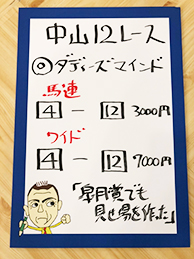 中山12レース
◎ダディーズマインド
馬連
4 － 12 3000円
ワイド
4 － 12 7000円
「皐月賞でも
見せ場を作った」